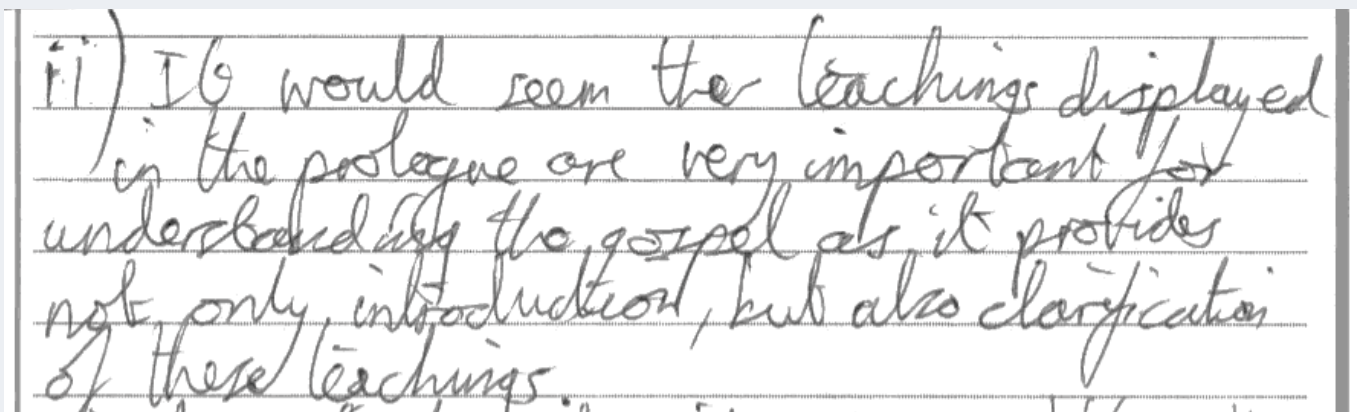 ii) It would seem the teachings displayed
in the prologue are very important for
understanding the gospel as it provides
not only introduction, but also clarification
of these teachings.